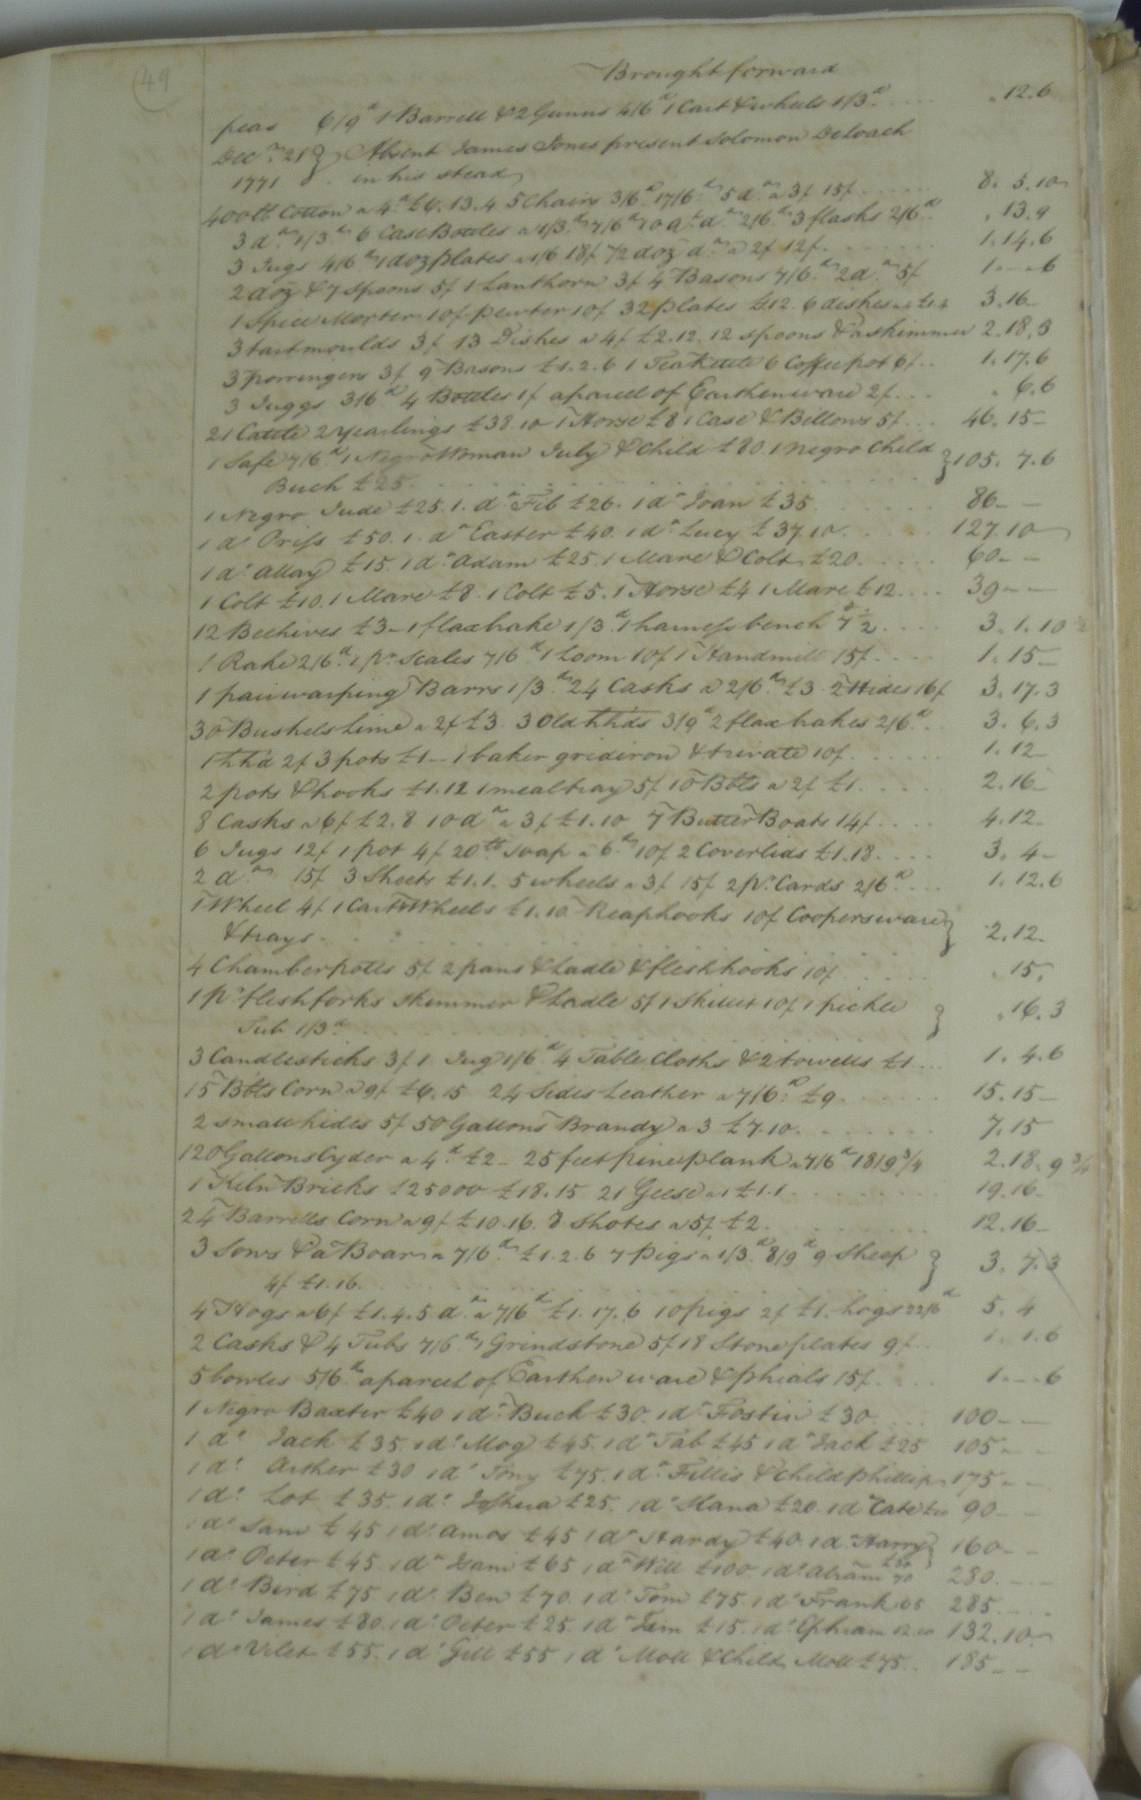 49
Brought forward
peas 6/9d 1 Barrell & 2 Gunns 4/6d 1 Cart & wheels 1/3d .12.6
Decr. 21 } Absent James Jones present Solomon Deloach
1771 in his stead
400lt Cotton a 4d £6.13.4 5 Chairs 3/6d 17/6d 5 do a 3/ 15/ 8.5.10
3 do 1/3d 6 Case Bottles a 1/3d 7/6d do 2/6d 3 flasks 2/6d .13.9
3 Jugs 4/6d 1 doz plates a 1/6 18/ 1/2 doz do a 2/ 12/ 1.14.6
2 doz & 7 spoons 5/ 1 Lanthorn 3/ 4 Basons 7/6d 2 do 5/ 1.-.6
1 Spice Morter 10/ pewter 10/ 32 plates £12. 6 dishes 3.16-
3 tart moulds 3/ 13 Dishes a 4/ £2.12. 12 spoons & a skimmer 2.18.3
3 porringers 3/ 9 Basons £1.2.6 1 Tea Kettle 6 Coffee pot 6/ 1.17.6
3 Juggs 3/6d 4 Bottles 1/ a parcel of Earthenware 2/ .6.6
21 Cattle 2 yearlings £38.10 1 Horse £8 1 Case & Bellows 5/ 46.15-
1 Safe 7/6d 1 Negro Woman July & Child £80 1 negro Child } 105.7.6
Buck £25
1 Negro Jude £25. 1. do Fib £26. 1 do Joan £35 86--
1 do Priss £50. 1. do Easter £40. 1 do Lucy £37.10. 127.10
1 do Allay £15. 1 do Adam £25. 1 Mare & Colt £20. 60--
1 Colt £10. 1 Mare £8. 1 Colt £5. 1 Horse £4 1 Mare £12 39--
12 Beehives £3- 1 flaxbrake 1/3d 1 harness bench 7d 1/2 3.1.10 1/2
1 Rake 2/6d 1 pr. Scales 7/6d 1 Loom 10/ 1 Handmill 15/ 1.15-
1 pair warping Barrs 1/3d 24 Casks a 2/6d £3 2 Hides 16/ 3.17.3
30 Bushels Lime a 2/ £3. 3 Old hhds 3/9d 2 flax brakes 2/6d 3.6.3
1 hhd 2/ 3 pots £1- 1 baker gridiron & trivate 10/ 1.12-
2 pots & hooks £1.12 1 meal tray 5/ 10 Bbls a 2/ £1 2.16-
8 Casks a 6/ £2.8 10 do a 3/ £1.10 7 Butter Boats 14/ 4.12-
6 Jugs 12/ 1 pot 4/ 20lb soap a 6d 10/ 2 Coverlids £1.18. 3.4-
2 do 15/ 3 Sheets £1.1. 5 wheels a 3/ 15/ 2 pr. Cards 2/6d 1.12.6
1 Wheel 4/ 1 Cart & Wheels £1.10 Reaphooks 10/ Coopers ware } 2.12-
& trays
4 Chamberpotts 5/ 2 pans & Ladle & fleshhooks 10/ .15.
1 pr. fleshforks skimmer & Ladle 5/ 1 Skillet 10/ 1 pickle } .16.3
Tub 1/3d
3 Candlesticks 3/ 1 Jug 1/6d 4 Table Cloths & 2 towells £1 1.4.6
15 Bbls Corn a 9/ £6.15 24 Sides Leather a 7/6d £9 15.15-
2 small hides 5/ 50 Gallons Brandy a 3 £7.10. 7.15
120 Gallons Cyder a 4d £2- 25 feet pine plank a 7/6d 18/9 3/4 2.18.9 3/4
1 Kiln Bricks 25000 £18.15 21 Geese a 1 £1.1 19.16-
24 Barrells Corn a 9/ £10.16. 8 Shotes a 5/ £2 12.16-
3 Sows & a Boar a 7/6d £1.2.6 7 pigs a 1/3d 8/9d 9 Sheep } 3.7.3
4/ £1.16
4 Hogs a 6/ £1.4. 5 do a 7/6d £1.17.6 10 pigs 2/ £1. hogs 22/6d 5.4
2 Casks & 4 Tubs 7/6d 1 Grindstone 5/ 18 Stone plates 9/ 1.1.6
5 bowles 5/6d a parcel of Earthen ware & phials 15/ 1.-.6
1 Negro Baxter £40 1 do Buck £30. 1 do Fostin £30 100--
1 do Jack £35. 1 do Mog £45. 1 do Tab £45 1 do Jack £25 105--
1 do Arther £30 1 do Tony £75. 1 do Fillis & Child phillip 175--
1 do Lot £35. 1 do Joshua £25. 1 do Hana £20. 1 do Cate 90--
1 do Sam £45 1 do Amos £45 1 do Hardy £40. 1 do Harry } 160--
1 do Peter £45. 1 do Sam £65 1 do Will £100. 1 do Abram 70 280.--
1 do Bird £75 1 do Ben £70. 1 do Tom £75. 1 do Frank 65 285.--
1 do James £80. 1 do Peter £25. 1 do Jim £15. 1 do Ephraim 12.10 132.10-
1 do Vilet £55. 1 do Gill £55 1 do Moll & Child Moll £75. 185--